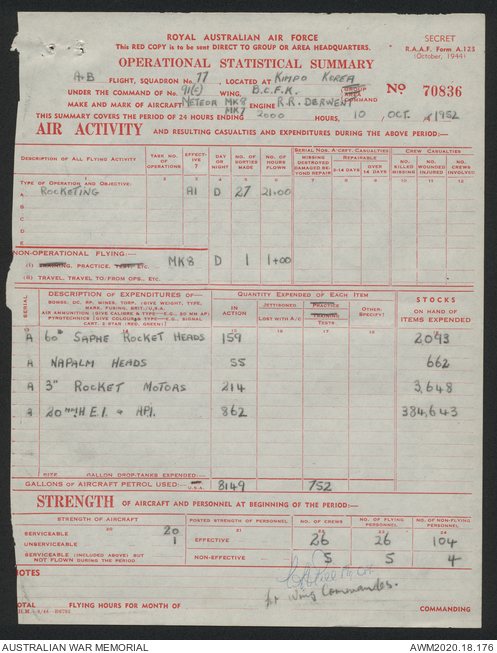 ROYAL AUSTRALIAN AIR FORCE
This RED COPY is to be sent DIRECT TO GROUP OR AREA HEADQUARTERS.
SECRET
R.A.A.F. Form A.125
(October, 1944)
OPERATIONAL STATISTICAL SUMMARY
A+B FLIGHT, SQUADRON No. 77, LOCATED AT KIMPO KOREA
UNDER THE COMMAND OF No. 91(c) WING, B.C.F.K. GROUP AREA COMMAND
No 70836
MAKE AND MARK OF AIRCRAFT METEOR MK8 MK7 ENGINE R.R. DERWENT
THIS SUMMARY COVERS THE PERIOD OF 24 HOURS ENDING 2000 HOURS, 10 OCT. 1952
AIR ACTIVITY AND RESULTING CASUALTIES AND EXPENDITURES DURING THE ABOVE PERIOD:—
DESCRIPTION OF ALL FLYING ACTIVITY
TASK NO. OF OPERATIONS
EFFECT-IVE
DAY OR NIGHT
NO. OF SORTIES MADE
NO. OF HOURS FLOWN
SERIAL NOS. A-CRFT. CASUALTIES
MISSING DESTROYED DAMAGED BEYOND REPAIR
REPAIRABLE
OVER 14 DAYS
CREW CASUALTIES
NO. KILLED MISSING
NO. WOUNDED INJURED
NO. CREWS INVOLVED
TYPE OF OPERATION AND OBJECTIVE:
A ROCKETING A1 D 27 21.00
B
C
D
E
NON-OPERATIONAL FLYING:—
(I) TRAINING, PRACTICE, TEST, ETC. MK8 D 1 1+00
(II) TRAVEL, TRAVEL TO/FROM OPS., ETC.
SERIAL
DESCRIPTION OF EXPENDITURES OF—
BOMBS, DC, RP, MINES, TORP. (GIVE WEIGHT, TYPE, MARK, FUSING, BRIT./U.S.A.
AIR AMMUNITION (GIVE CALIBRE & TYPE—E.G., 20 MM AP)
PYROTECHNICS (GIVE COLOUR & TYPE—E.G., SIGNAL CART. 2 STAR (RED, GREEN)
QUANTITY EXPENDED OF EACH ITEM
IN ACTION
JETTISONED
LOST WITH A/C
PRACTICE
TRAINING
TESTS
OTHER: SPECIFY)
STOCKS
ON HAND OF ITEMS EXPENDED
A 60lb SAPHE ROCKET HEADS 159 2093
A NAPALM HEADS 55 662
A 3" ROCKET MOTORS 214 3,648
A 20 MM H.E.I. & API. 862 384,643
GALLON DROP-TANKS EXPENDED—
GALLONS OF AIRCRAFT PETROL USED:— U.S.A. 8149 752
STRENGTH OF AIRCRAFT AND PERSONNEL AT BEGINNING OF THE PERIOD:—
STRENGTH OF AIRCRAFT
POSTED STRENGTH OF PERSONNEL
NO. OF CREWS
NO. OF FLYING PERSONNEL
NO. OF NON-FLYING PERSONNEL
SERVICEABLE 20
EFFECTIVE 26 26 104
UNSERVICEABLE 1
SERVICEABLE (INCLUDED ABOVE) BUT NOT FLOWN DURING THE PERIOD
NON-EFFECTIVE 5 5 4
NOTES
for Wing Commander.
OTAL FLYING HOURS FOR MONTH OF
COMMANDING
AUSTRALIAN WAR MEMORIAL
AWM2020.18.176